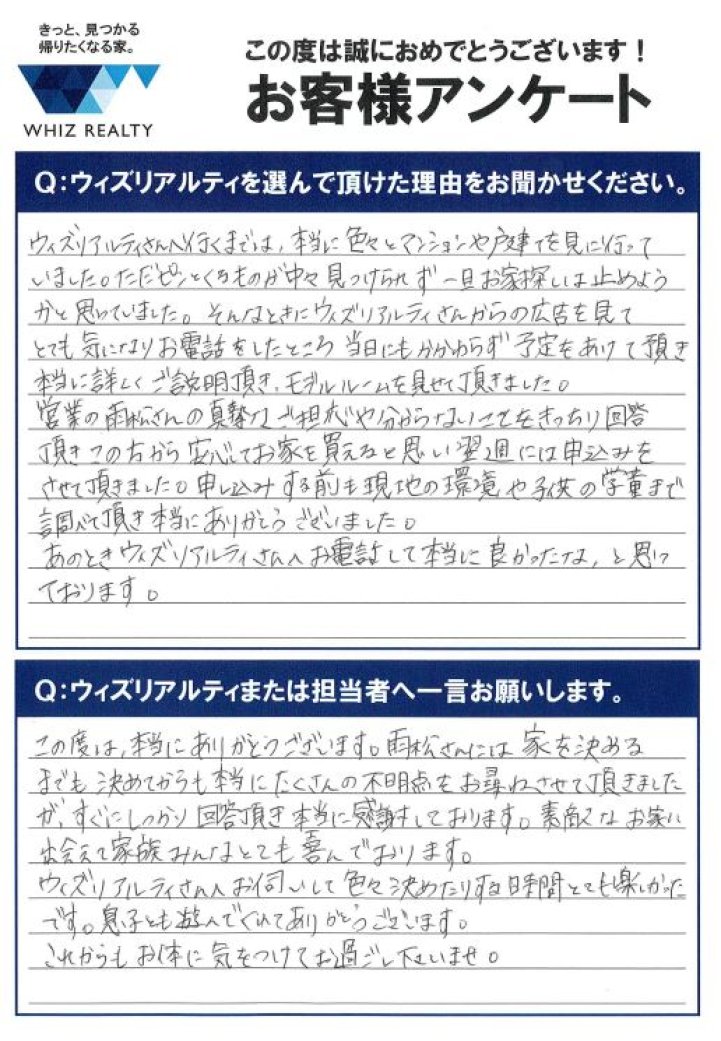 きっと、見つかる
帰りたくなる家。
WHIZ REALTY
この度は誠におめでとうございます!
お客様アンケート
Q:ウィズリアルティを選んで頂けた理由をお聞かせください。
ウィズリアルティさんへ行くまでは、本当に色々とマンションや戸建てを見に行って
いました。ただピンとくるものが中々見つけられず一旦お家探しは止めよう
かと思っていました。そんなときにウィズリアルティさんからの広告を見て
とても気になりお電話をしたところ当日にもかかわらず予定をあけて頂き
本当に詳しくご説明頂き、モデルルームを見せて頂きました。
営業の雨松さんの真摯なご担応や分からないことをきっちり回答
頂きこの方から安心してお家を買えると思い翌週には申込みを
させて頂きました。申し込みする前も現地の環境や子供の学童まで
調べて頂き本当にありがとうございました。
あのときウィズリアルティさんへお電話して本当に良かったな、と思っ
ております。
Q:ウィズリアルティまたは担当者へ一言お願いします。
この度は、本当にありがとうございます。雨松さんには家を決める
までも決めてからも本当にたくさんの不明点をお尋ねさせて頂きました
が、すぐにしっかり回答頂き本当に感謝しております。素敵なお家に
出会えて家族みんなとても喜んでおります。
ウィズリアルティさんへお伺いして色々決めたりする時間とても楽しかった
です。息子とも遊んでくれてありがとうございます。
これからもお体に気をつけてお過ごし下さいませ。